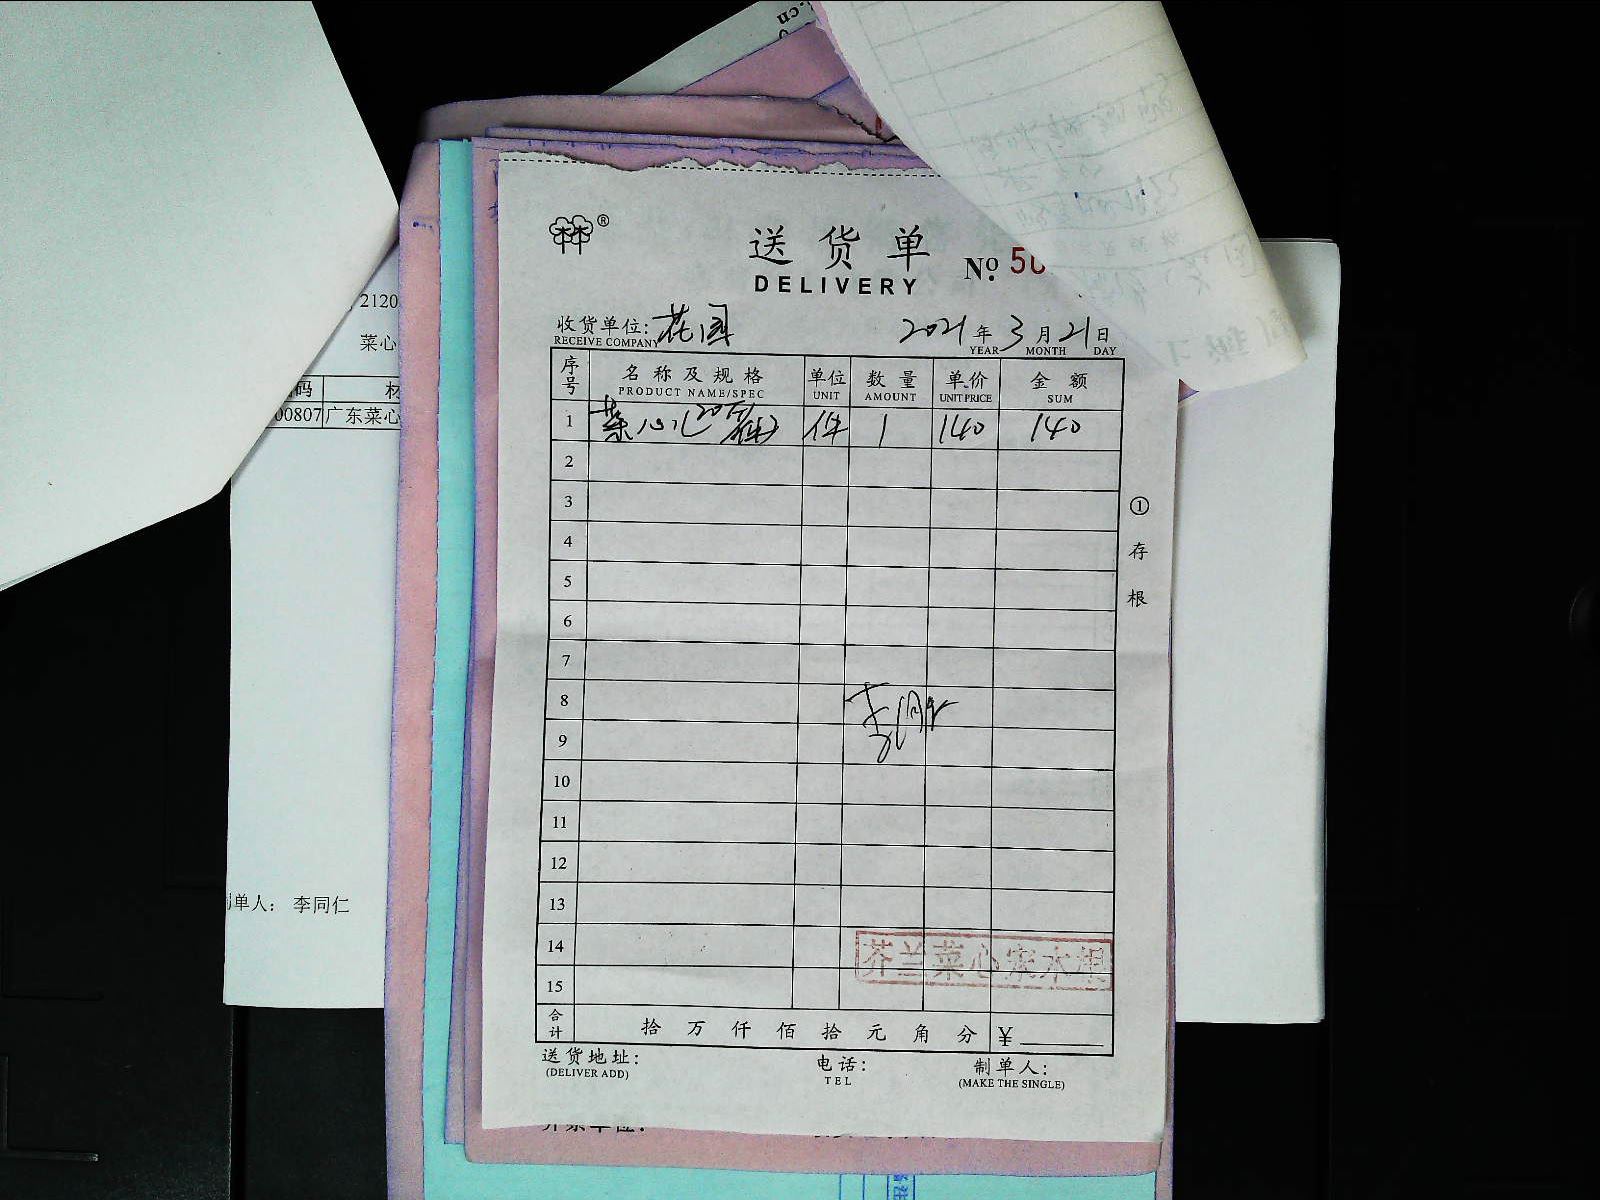 .cn
®
送货单
DELIVERY
№ 50
收货单位: 花园
RECEIVE COMPANY
2021 年 3 月 21 日
YEAR MONTH DAY
2120
菜心
码 材
00807 广东菜心
序号 名称及规格 单位 数量 单价 金额
PRODUCT NAME/SPEC UNIT AMOUNT UNIT PRICE SUM
1 菜心 件 1 140 140
2
3
4
5
6
7
8
9
10
11
12
13
14
15
李同仁
① 存根
制单人: 李同仁
芥兰菜心
合计 拾 万 仟 佰 拾 元 角 分 ¥
送货地址: 电话: 制单人:
(DELIVER ADD) TEL (MAKE THE SINGLE)